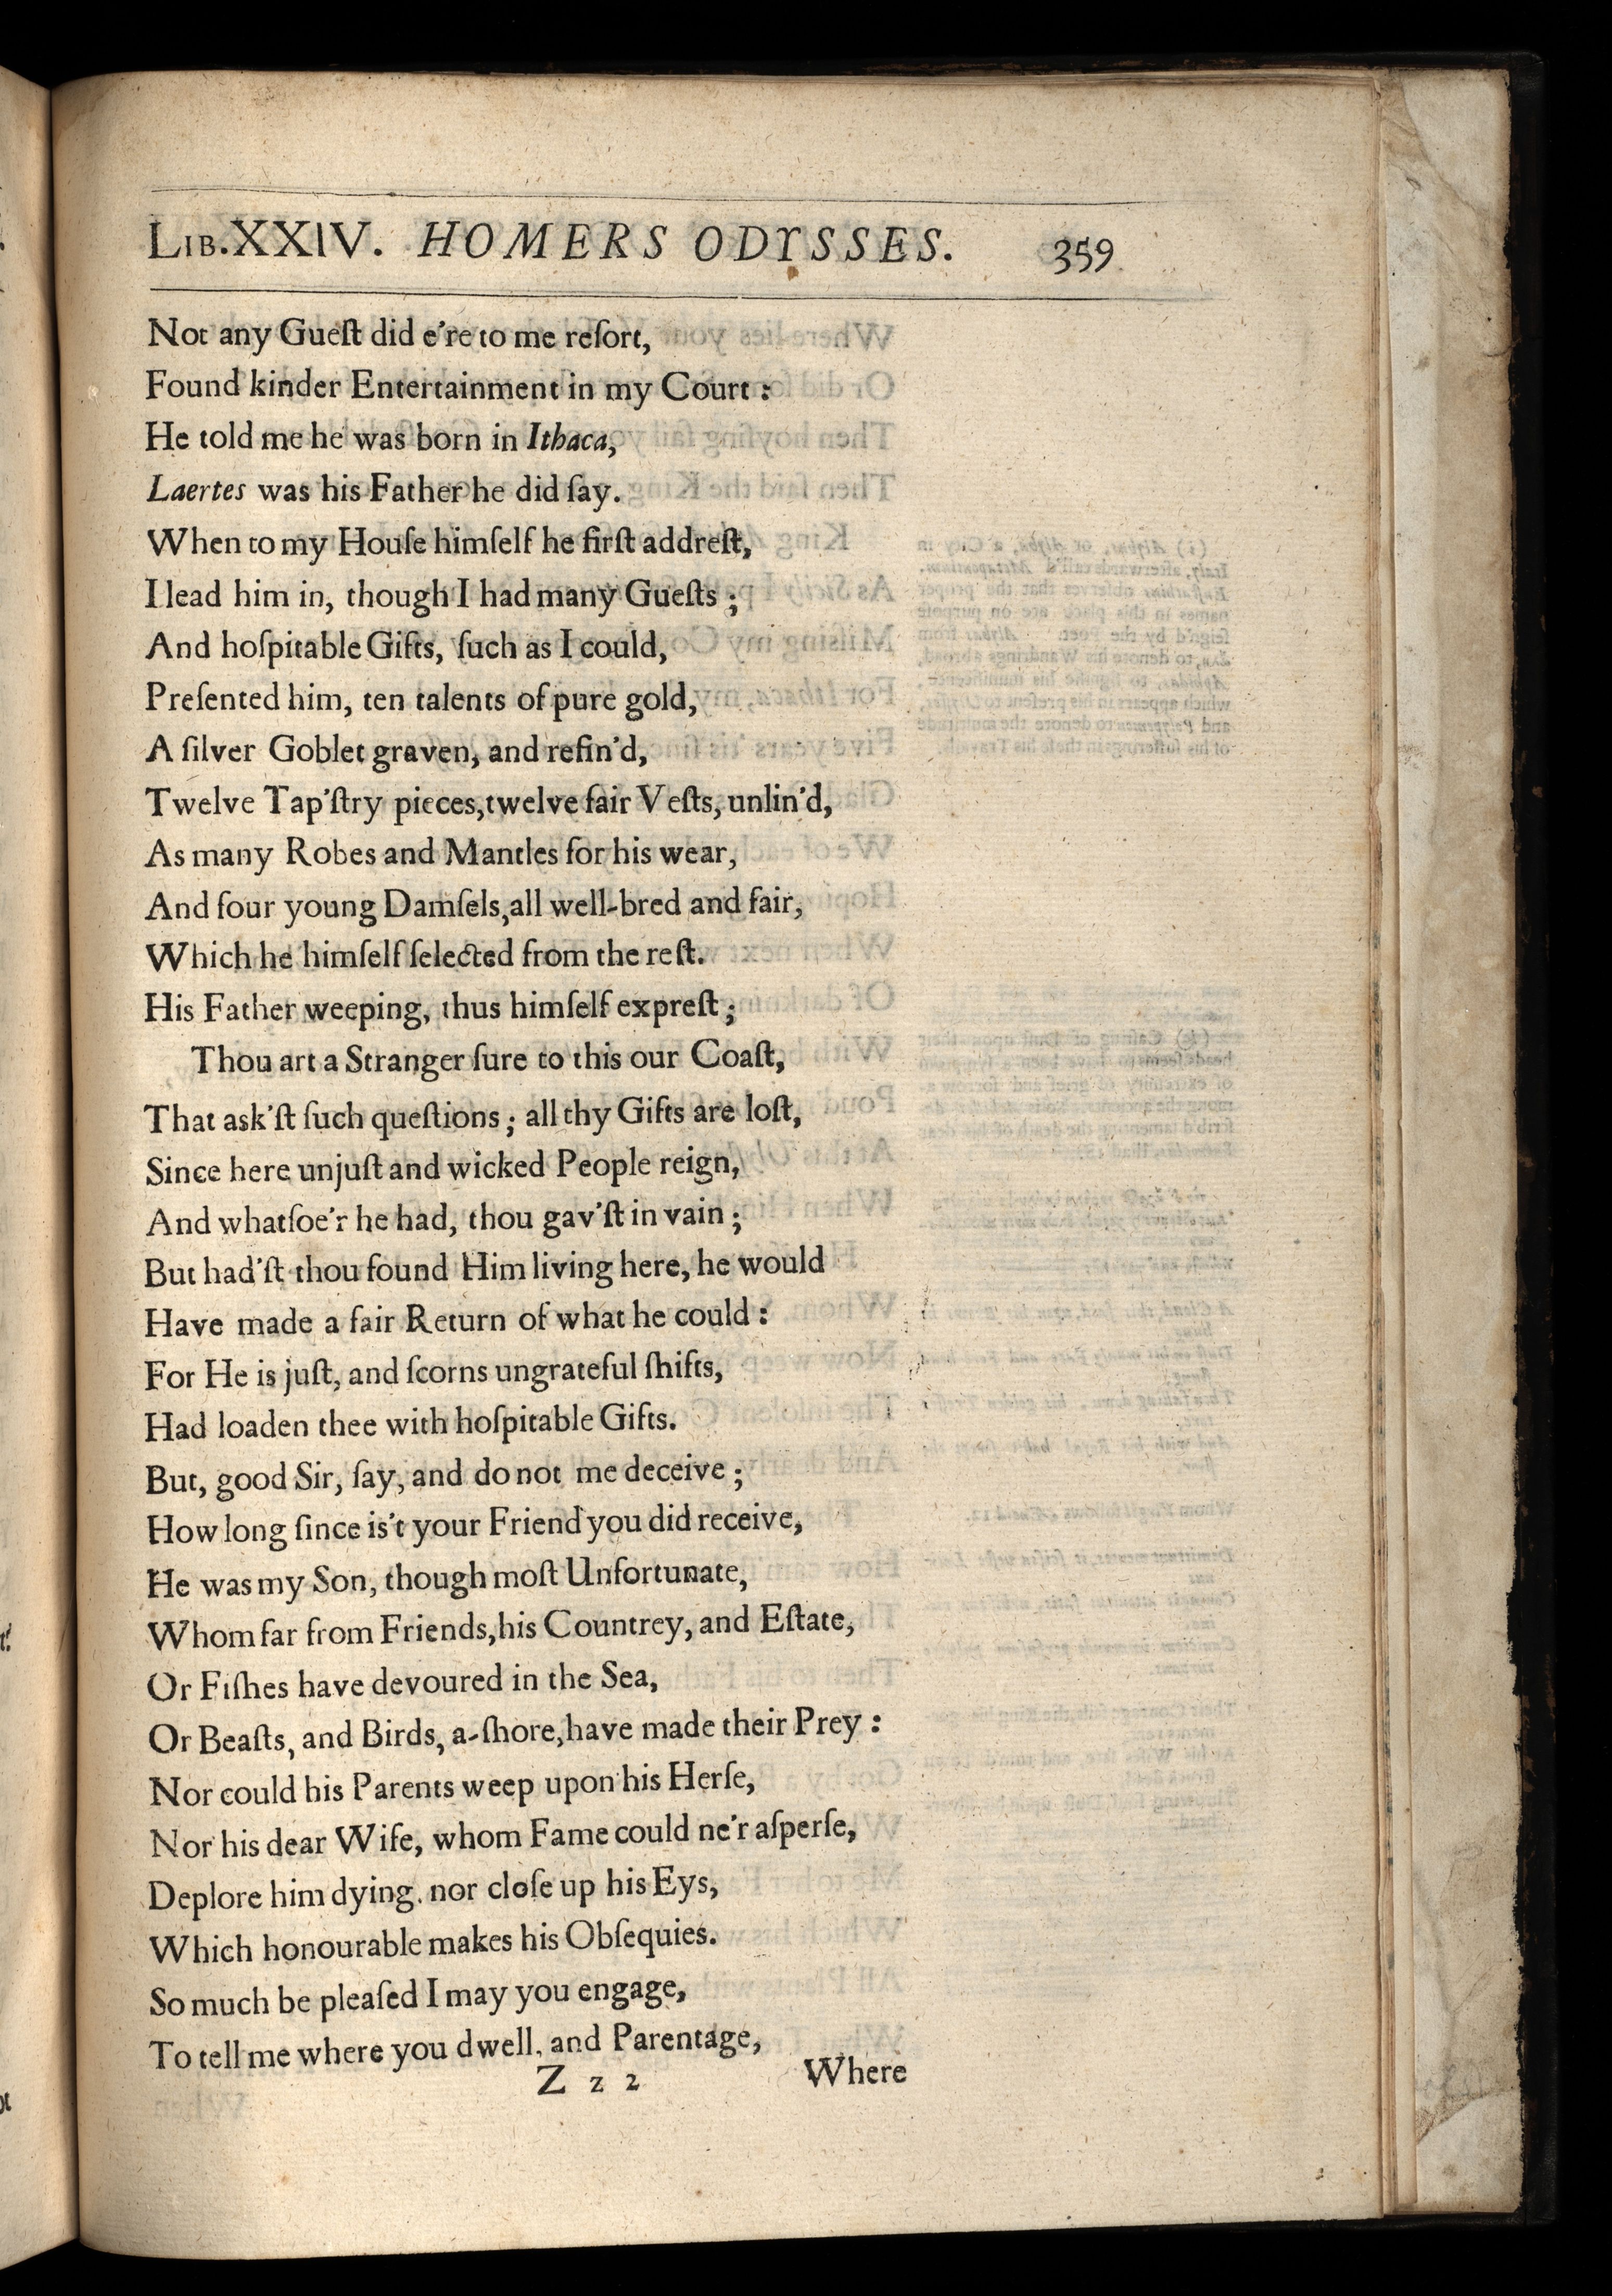 LIB.XXIV. HOMERS ODYSSES. 359
Not any Gueſt did e're to me reſort,
Found kinder Entertainment in my Court:
He told me he was born in Ithaca,
Laertes was his Father he did ſay.
When to my Houſe himſelf he firſt addreſt,
I lead him in, though I had many Gueſts;
And hoſpitable Gifts, ſuch as I could,
Preſented him, ten talents of pure gold,
A ſilver Goblet graven, and refin'd,
Twelve Tap'ſtry pieces, twelve fair Veſts, unlin'd,
As many Robes and Mantles for his wear,
And four young Damſels, all well-bred and fair,
Which he himſelf ſelected from the reſt.
His Father weeping, thus himſelf expreſt;
Thou art a Stranger ſure to this our Coaſt,
That ask'ſt ſuch queſtions; all thy Gifts are loſt,
Since here unjuſt and wicked People reign,
And whatſoe'r he had, thou gav'ſt in vain;
But had'ſt thou found Him living here, he would
Have made a fair Return of what he could:
For He is juſt, and ſcorns ungrateful ſhifts,
Had loaden thee with hoſpitable Gifts.
But, good Sir, ſay, and do not me deceive;
How long ſince is't your Friend you did receive,
He was my Son, though moſt Unfortunate,
Whom far from Friends, his Countrey, and Eſtate,
Or Fiſhes have devoured in the Sea,
Or Beaſts, and Birds, a-ſhore, have made their Prey:
Nor could his Parents weep upon his Herſe,
Nor his dear Wife, whom Fame could ne'r aſperſe,
Deplore him dying. nor cloſe up his Eys,
Which honourable makes his Obſequies.
So much be pleaſed I may you engage,
To tell me where you dwell, and Parentage,
Z z 2 Where